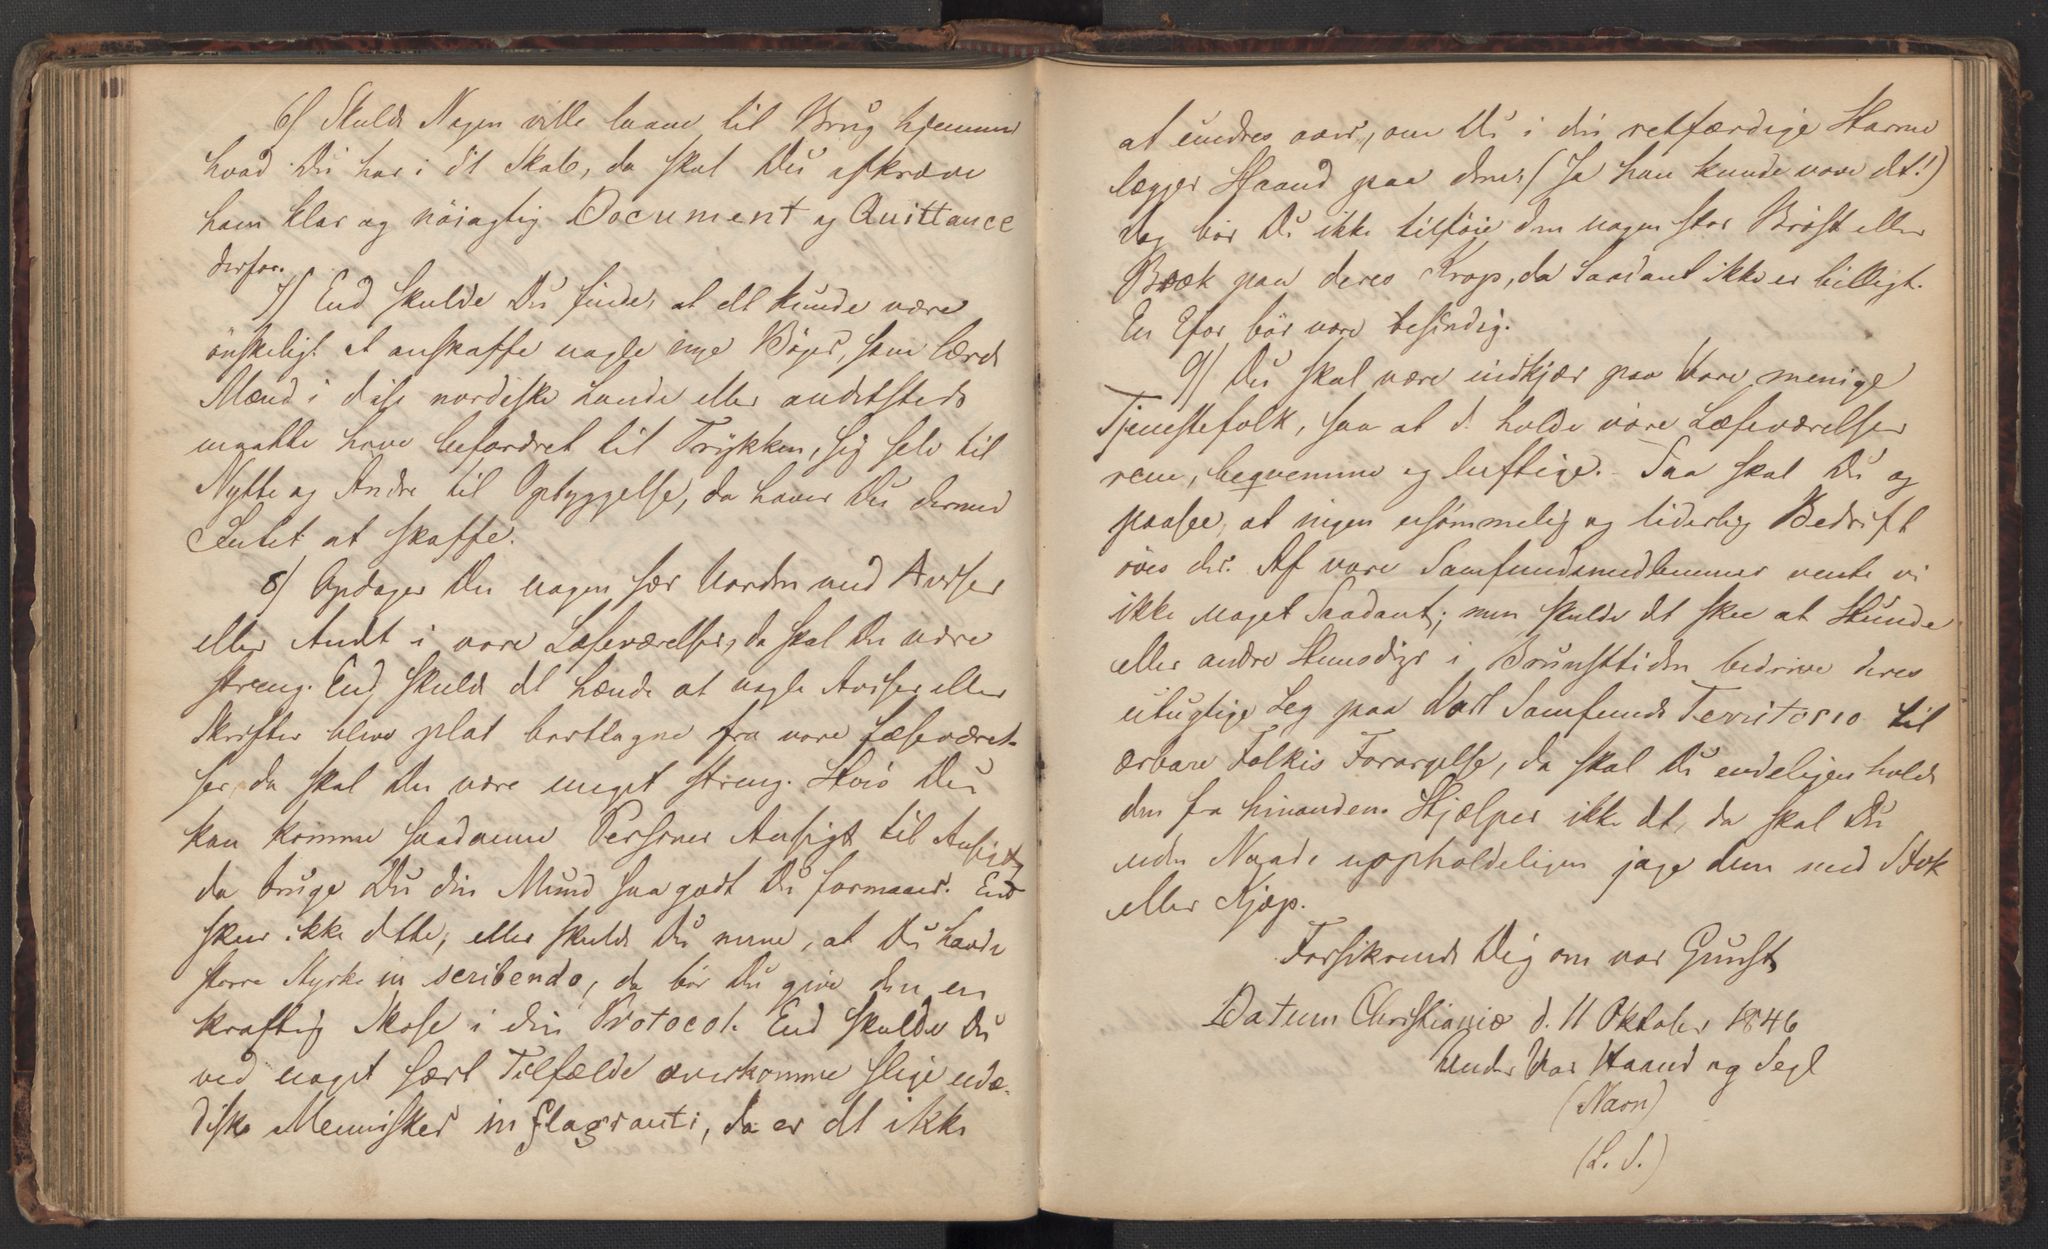 6) Skulde Nogen ville laane til Brug hjemme
hvad Du har i dit Skab, da skal Du afkræve
ham klar og nöiagtig Document og Quittance
derfor.
7) End skulde Du finde, at det kunde være
önskeligt at anskaffe nogle nye Böger, som lærde
Mænd i disse nordiske Lande eller andetsteds
maatte have befordret til Trykken, sig selv til
Nytte og Andre til Opbyggelse, da haver Du dermed
Intet at skaffe.
8) Opdager Du nogen sær Uorden med Aviser
eller Andt i vore Læseværelser, da skal Du være
streng. End skulde det hænde at nogle Aviser eller
Skrifter blive plat borttagne fra vore Læseværel-
ser, da skal Du være meget streng. Hvis Du
kan komme saadanne Personer Ansigt til Ansigt,
da bruge Du din Mund saa godt Du formaaer. End
skeer ikke dette, eller skulde Du mene, at Du havde
större Styrke in scribendo, da bör Du give dem en
kraftig Skose i din Protocol. End skulde Du
ved noget sært Tilfælde overkomme slige udæ-
diske Mennisker in flagranti, da er det ikke
at undres over, om Du i din retfærdige Harme
lægger Haand paa dem; (Ja han kunde vove det!)
dog bör Du ikke tilföie dem nogen stor Bröst eller
Bræk paa deres Krop, da Saadant ikke er billigt.
En Efor bör være besindig.
9) Du skal være indkjær paa Vore menige
Tjenestefolk, saa at de holde vore Læseværelser
rene, beqvemme og luftige. - Saa skal Du og
paasee, at ingen usömmelig og liderlig Bedrift
öves der. Af vore Samfundsmedlemmer vente vi
ikke noget Saadant; men skulde det skee at Hunde
eller andre Huusdyr i Brunsttiden bedrive deres
utugtige Leg paa Vort Samfunds Territorio til
ærbare Folkis Forargelse, da skal Du endeligen holde
dem fra hinanden. Hjælper ikke det, da skal Du
uden Naade uopholdeligen jage dem med Stok
eller Kjæp.
Forsikrende Dig om vor Gunst,
Datum Christianiæ d. 11 Oktober 1846
Under Vor Haand og Segl
(Navn)
(L. S.)